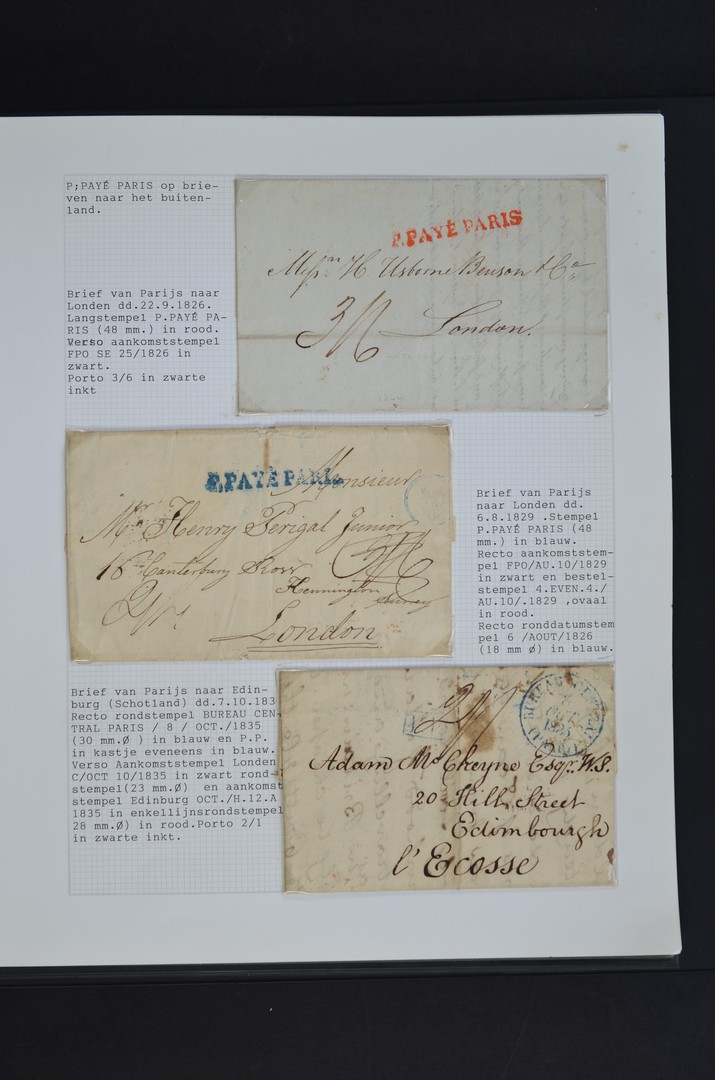 P;PAYÉ PARIS op brie-
ven naar het buiten-
land.
Brief van Parijs naar
Londen dd.22.9.1826.
Langstempel P.PAYÉ PA-
RIS (48 mm.) in rood.
Verso aankomststempel
FPO SE 25/1826 in
zwart.
Porto 3/6 in zwarte
inkt
P.PAYÉ PARIS
Messrs H. Usborne Benson & Co
London.
P.PAYÉ PARIS
Monsieur
Mr. Henry Perigal Junior
16 Canterbury Row
Kennington
Surrey
London
Brief van Parijs
naar Londen dd.
6.8.1829 .Stempel
P.PAYÉ PARIS (48
mm.) in blauw.
Recto aankomststem-
pel FPO/AU.10/1829
in zwart en bestel-
stempel 4.EVEN.4./
AU.10/.1829 ,ovaal
in rood.
Recto ronddatumstem
pel 6 /AOUT/1826
(18 mm Ø) in blauw.
Brief van Parijs naar Edin-
burg (Schotland) dd.7.10.183
Recto rondstempel BUREAU CEN
TRAL PARIS / 8 / OCT./1835
(30 mm.Ø ) in blauw en P.P.
in kastje eveneens in blauw.
Verso Aankomststempel Londen
C/OCT 10/1835 in zwart rond-
stempel(23 mm.Ø)  en aankomst
stempel Edinburg OCT./H.12.A
1835 in enkellijnsrondstempel
28 mm.Ø) in rood.Porto 2/1
in zwarte inkt.
Adam Mc Cheyne Esqr. W.S.
20 Hill Street
Edimbourgh
l'Ecosse